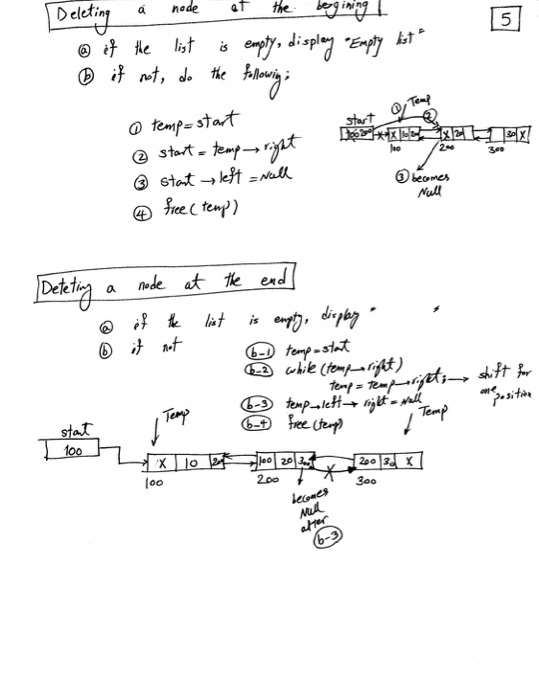 Deleting a node at the bergining
5
ⓐ if the list is empty, display "Empty list"
ⓑ if not, do the following:
① temp = start
② start = temp → right
③ start → left = Null
④ free (temp)
① Temp
②
start
100 200 X 10 20 X 20 30 X
100 200 300
③ becomes
Null
Deteting a node at the end
ⓐ if the list is empty, display " "
ⓑ if not
b-1 temp = start
b-2 while (temp → right)
temp = temp → right; → shift for
one position
b-3 temp → left → right = Null
b-4 free (temp)
Temp Temp
start
100
X 10 20 100 20 300 200 30 X
100 200 300
X
becomes
Null
after
b-3